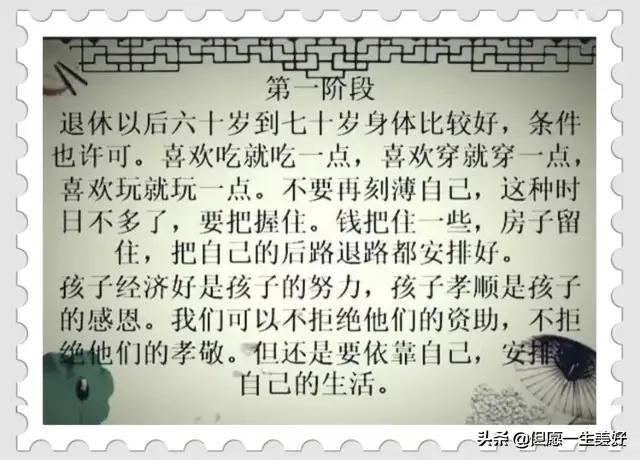 第一阶段
退休以后六十岁到七十岁身体比较好，条件
也许可。喜欢吃就吃一点，喜欢穿就穿一点，
喜欢玩就玩一点。不要再刻薄自己，这种时
日不多了，要把握住。钱把住一些，房子留
住，把自己的后路退路都安排好。
孩子经济好是孩子的努力，孩子孝顺是孩子
的感恩。我们可以不拒绝他们的资助，不拒
绝他们的孝敬。但还是要依靠自己，安排
自己的生活。
头条 @但愿一生美好